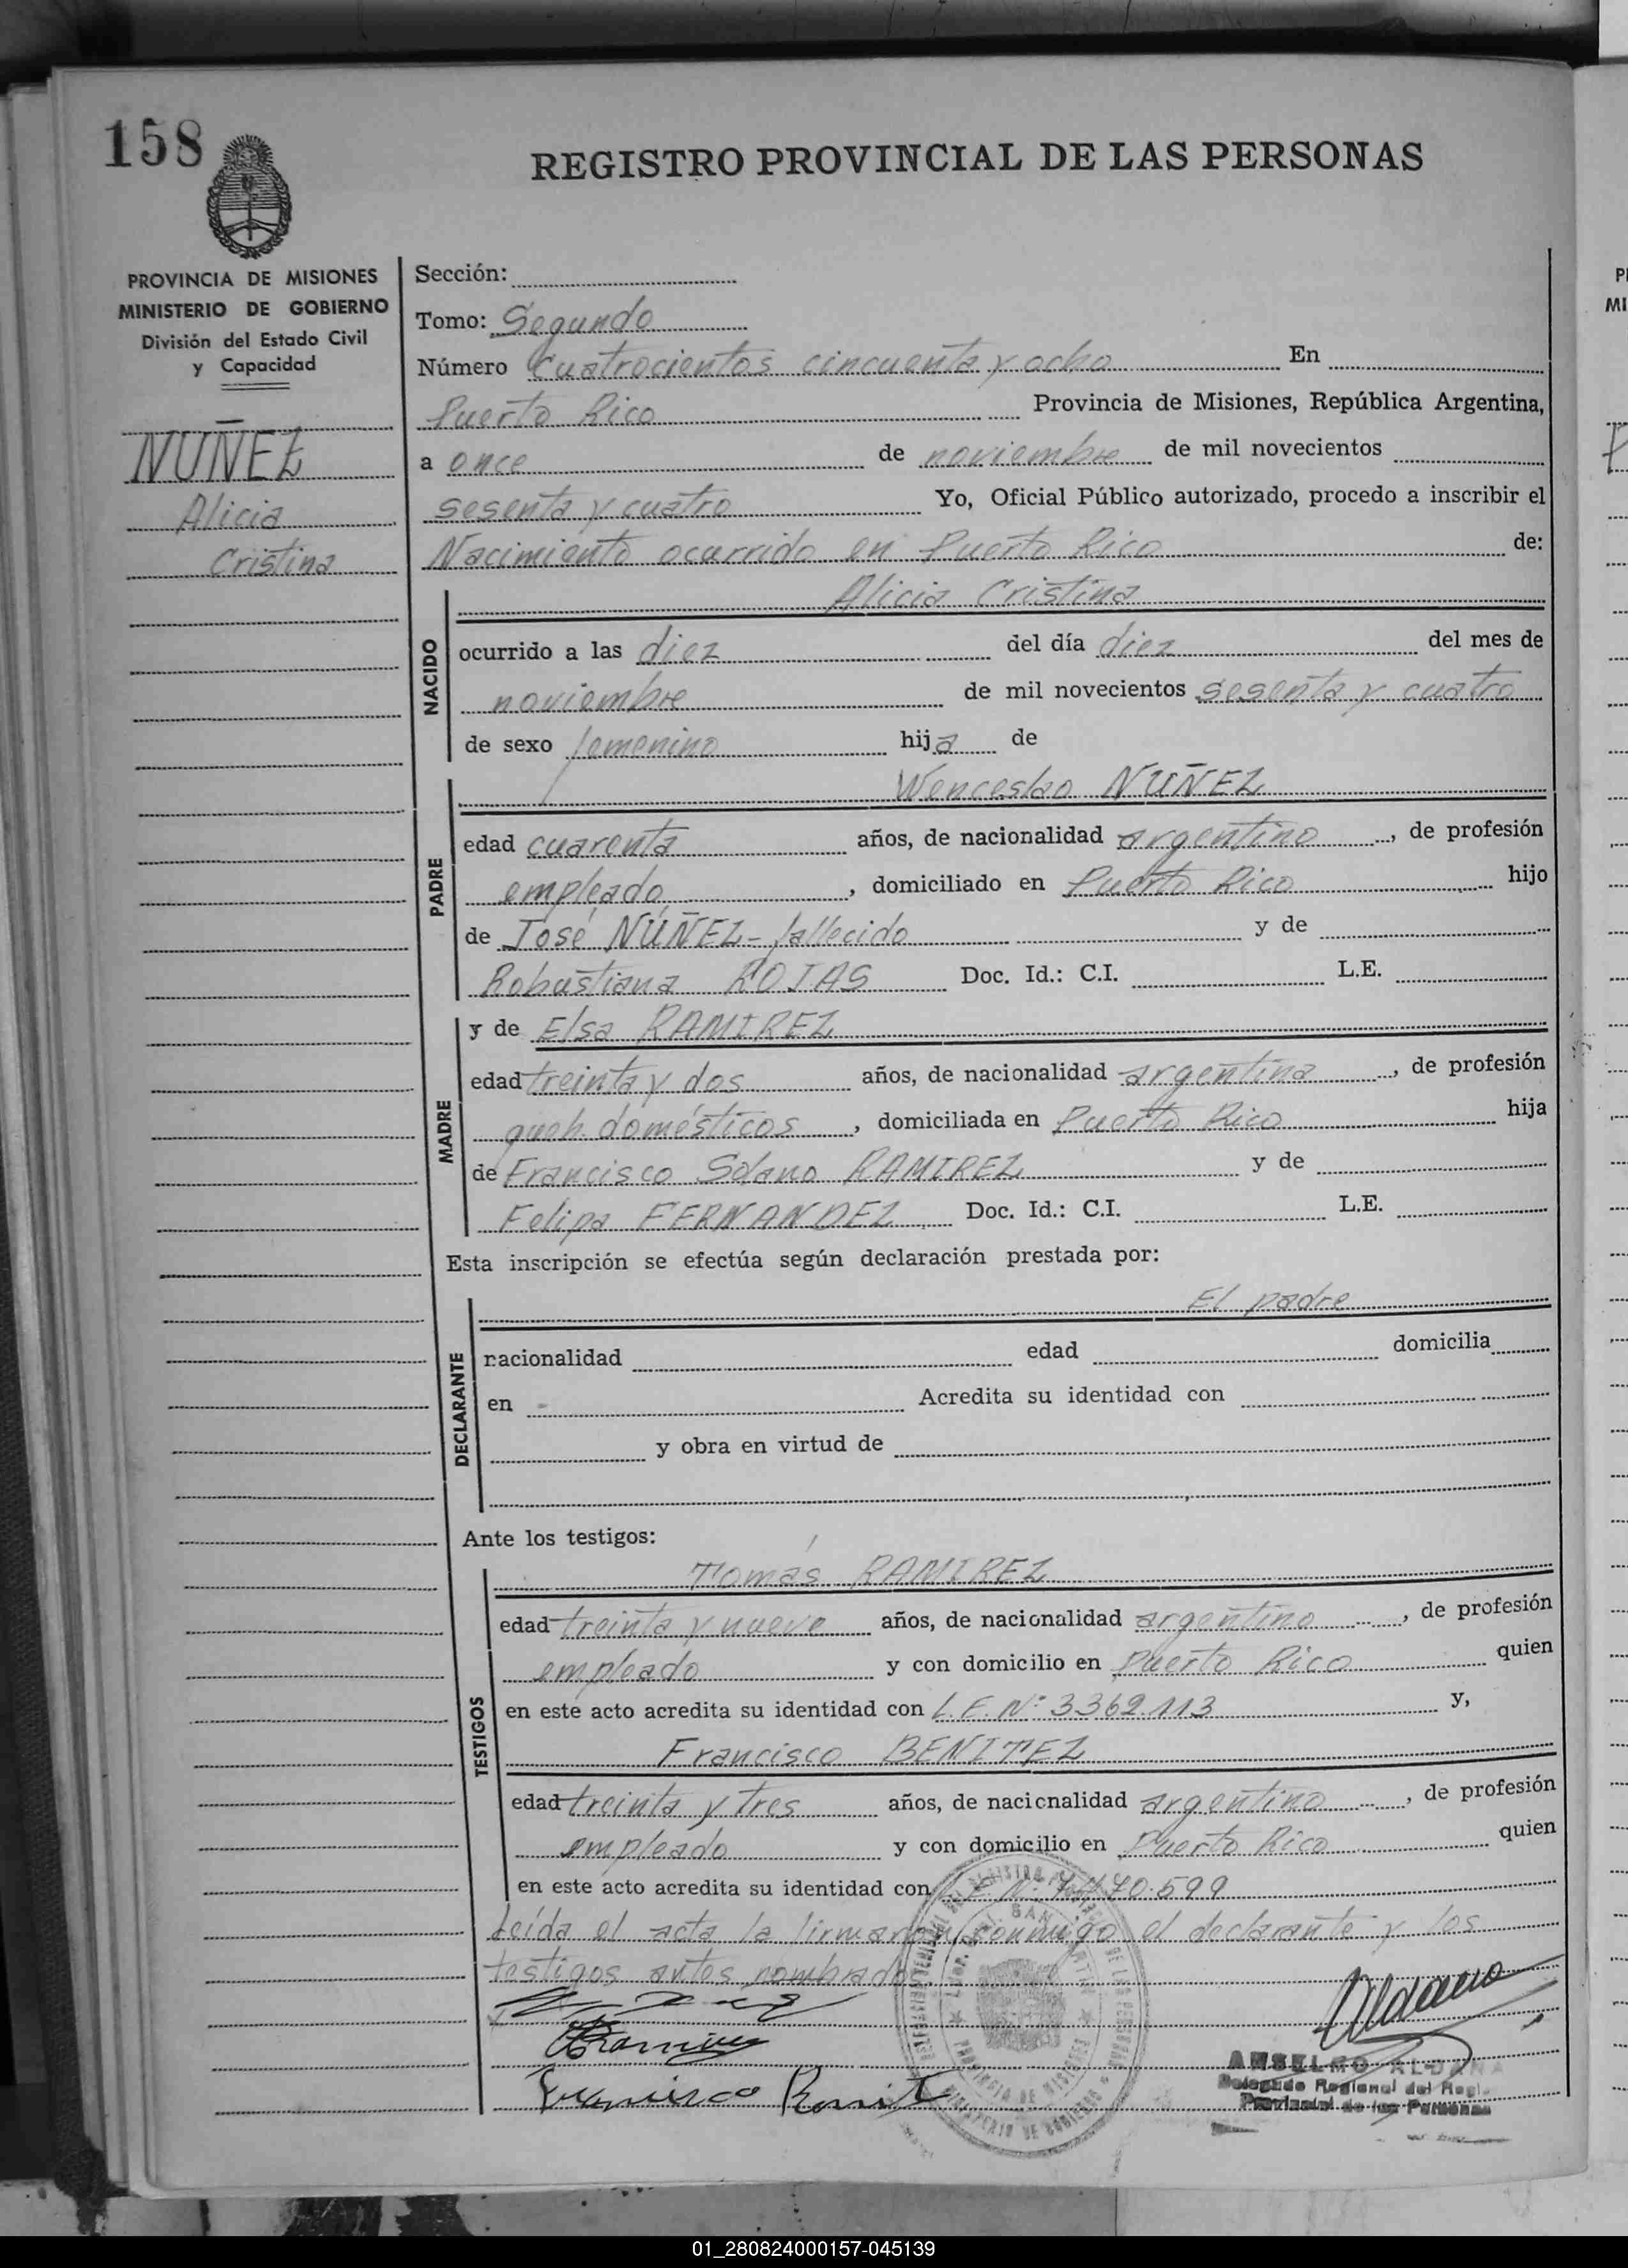 158
REGISTRO PROVINCIAL DE LAS PERSONAS
PROVINCIA DE MISIONES
MINISTERIO DE GOBIERNO
División del Estado Civil
y Capacidad
NUÑEZ
Alicia
Cristina
Sección:
Tomo: Segundo
Número Cuatrocientos cincuenta y ocho En
Puerto Rico Provincia de Misiones, República Argentina,
a once de noviembre de mil novecientos
sesenta y cuatro Yo, Oficial Público autorizado, procedo a inscribir el
Nacimiento ocurrido en Puerto Rico de:
Alicia Cristina
NACIDO
ocurrido a las diez del día diez del mes de
noviembre de mil novecientos sesenta y cuatro
de sexo femenino hija de
Wenceslao NUÑEZ
PADRE
edad cuarenta años, de nacionalidad argentino, de profesión
empleado, domiciliado en Puerto Rico hijo
de José NUÑEZ-fallecido y de
Robustiana ROJAS Doc. Id.: C.I. L.E.
y de Elsa RAMIREZ
MADRE
edad treinta y dos años, de nacionalidad argentina, de profesión
queh. domésticos, domiciliada en Puerto Rico hija
de Francisco Solano RAMIREZ y de
Felipa FERNANDEZ Doc. Id.: C.I. L.E.
Esta inscripción se efectúa según declaración prestada por:
El padre
DECLARANTE
nacionalidad edad domicilia
en Acredita su identidad con
y obra en virtud de
Ante los testigos:
Tomás RAMIREZ
TESTIGOS
edad treinta y nueve años, de nacionalidad argentino, de profesión
empleado y con domicilio en Puerto Rico quien
en este acto acredita su identidad con L.E. Nº 3362.113 y,
Francisco BENITEZ
edad treinta y tres años, de nacionalidad argentino, de profesión
empleado y con domicilio en Puerto Rico quien
en este acto acredita su identidad con L.E. Nº
Leída el acta la firmaron conmigo el declarante y los
testigos antes nombrados
Ramirez
Francisco Benit
Aldana
ANSELMO ALDANA
Delegado Regional del Regi.
Provincial de las Personas
PROVINCIA DE MISIONES
MINISTERIO DE GOBIERNO
01_280824000157-045139